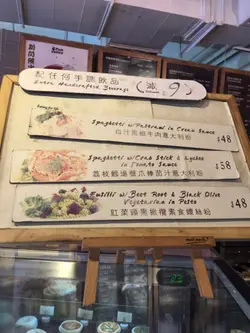 配任何手調飲品
Extra Handcrafted Beverage
減 9
Spaghetti w Pastrami in Cream Sauce
白汁黑椒牛肉意大利粉
$48
Spaghetti w Crab Stick & Lychee
in Tomato Sauce
荔枝鶴場蟹爪棒茄汁意大利粉
$58
Fusilli w Beet Root & Black Olive
Vegetarian in Pesto
紅菜頭黑橄欖素食螺絲粉
$48